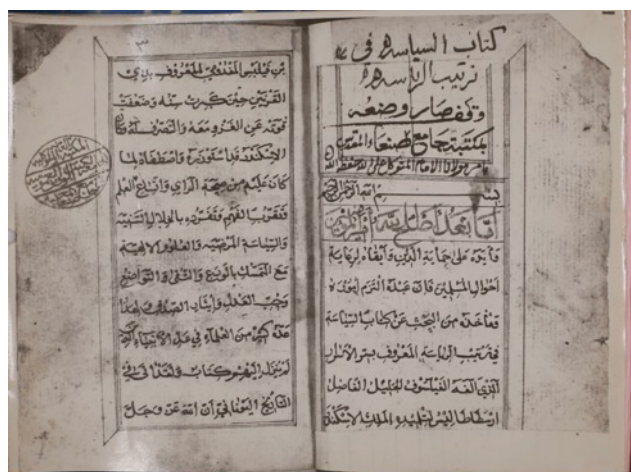 كتاب السياسة في
ترتيب الرياسة
وقف صار وضعه
بمكتبة جامع صنعا المقدس
بامر مولانا الامام المتوكل على الله حفظه الله
بسم الله الرحمن الرحيم
اما بعد اصلح الله امير المؤمنين
وايده على حماية الدين وابقاه لرعاية
احوال المسلمين فان عبده التزم
من البحث عن كتاب السياسة
في ترتيب الرياسة المعروف بسر الاسرار
الذي الفه الفيلسوف الجليل الفاضل
ارسطاطاليس لتلميذه الملك الاسكندر
٣
بن فيلبس المقدوني المعروف بذي
القرنين حين كبرت سنه وضعفت
قوته عن الغزو معه والتصرف له وكان
الاسكندر قد استوزره واصطفاه لما
كان عليه من صحة الراي واتساع العلم
وثقوب الفهم وتفرده بالخلال السنية
والسياسة المرضية والعلوم الالهية
مع التمسك بالورع والتقى والتواضع
وحب العدل وايثار الصدق ولهذا
عده كثير من العلماء في عدد الانبياء
لم ينزل اليهم كتاب ولقد في
التاريخ ان الله عز وجل